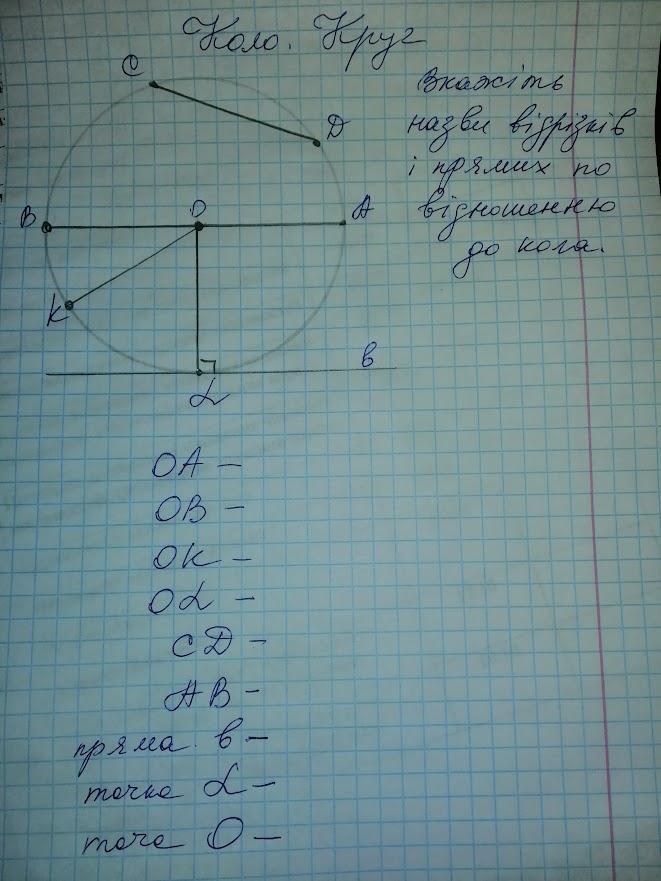 Коло. Круг
Вкажіть
назви відрізків
і прямих по
відношенню
до кола.
C
D
B
O
A
K
L
в
OA –
OB –
OK –
OL –
CD –
AB –
пряма в –
точка L –
точа O –